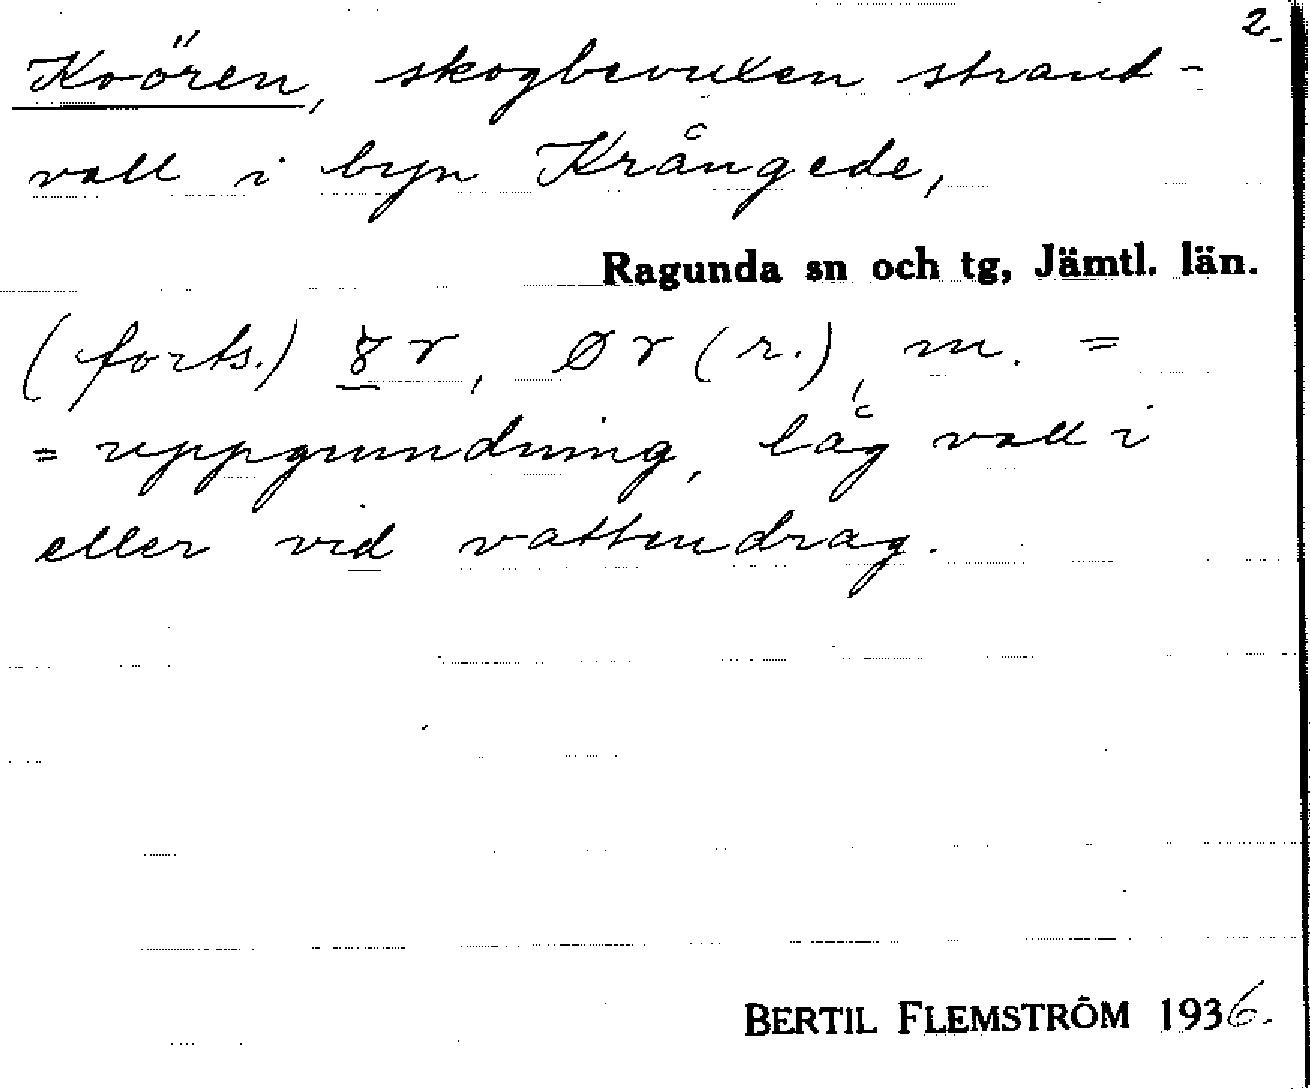 2.
Koören, skogbevuxen strand-
vall i byn Krångede,
Ragunda sn och tg, Jämtl. län.
(forts.) ør (r.), m. =
= uppgrundning, låg vall i
eller vid vattendrag.
BERTIL FLEMSTRÖM 1936.